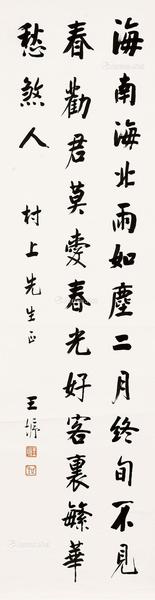 海南海北雨如塵二月終旬不見
春勸君莫愛春光好客裏繁華
愁煞人
村上先生正
王